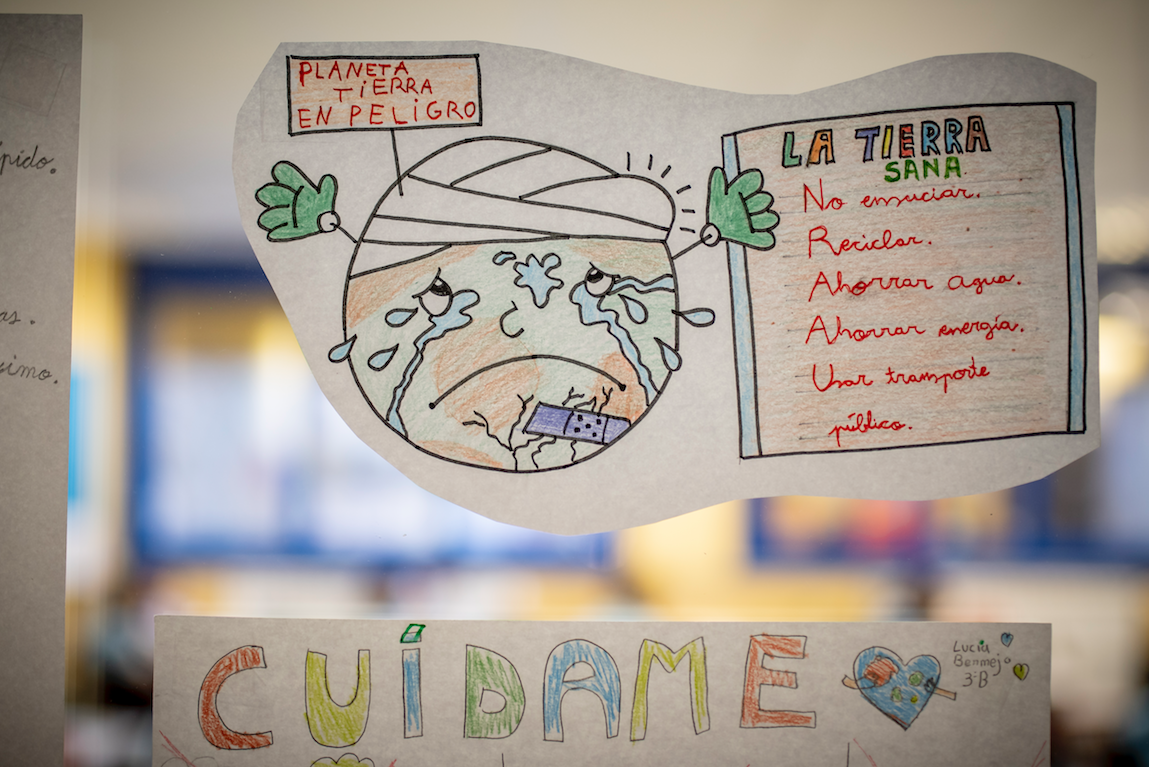 PLANETA
TiERRA
EN PELiGRO
LA TIERRA
SANA
No ensuciar.
Reciclar.
Ahorrar agua.
Ahorrar energía.
Usar transporte
público.
CUÍDAME
Lucía
Bermejo
3ºB